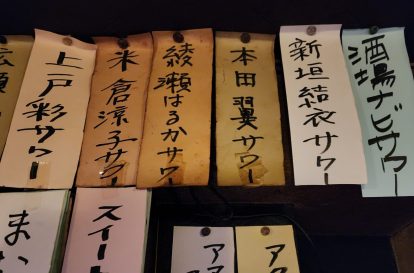 酒場ナビサワー
新垣結衣サワー
本田翼サワー
綾瀬はるかサワー
米倉涼子サワー
上戸彩サワー
広瀬
スイート
まい